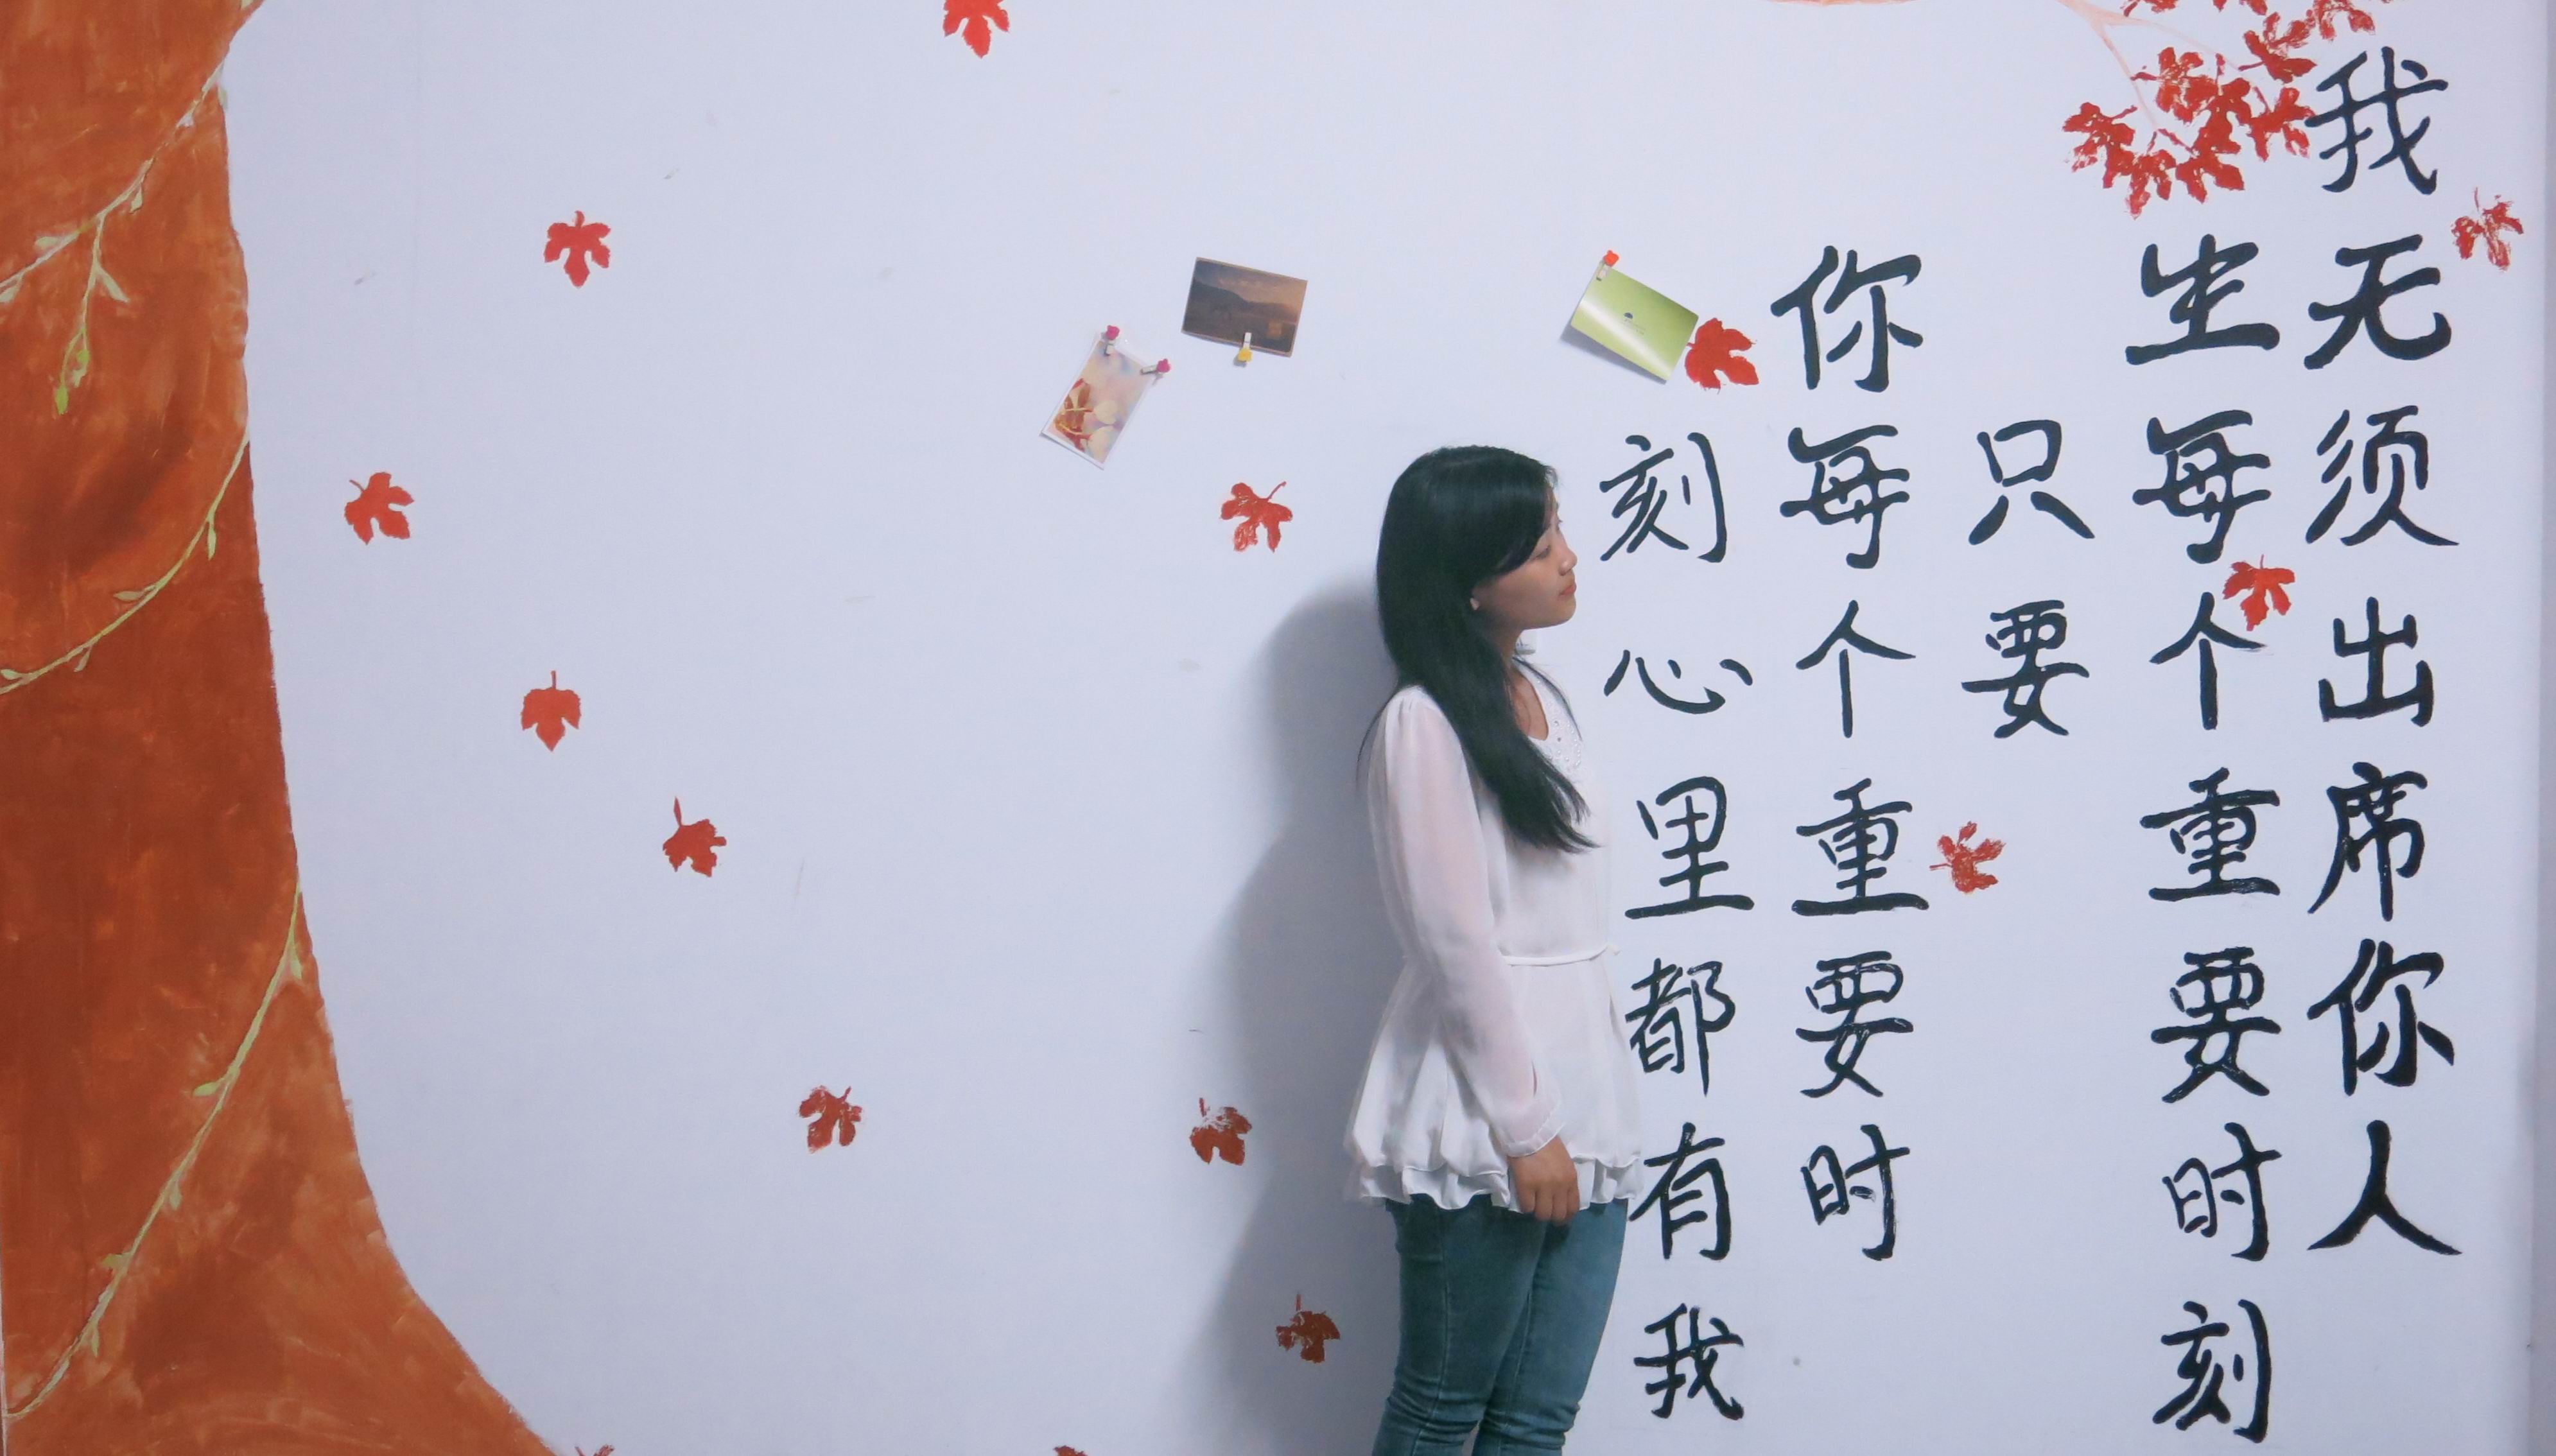 我无须出席你人
生每个重要时刻
只要
你每个重要时
刻心里都有我